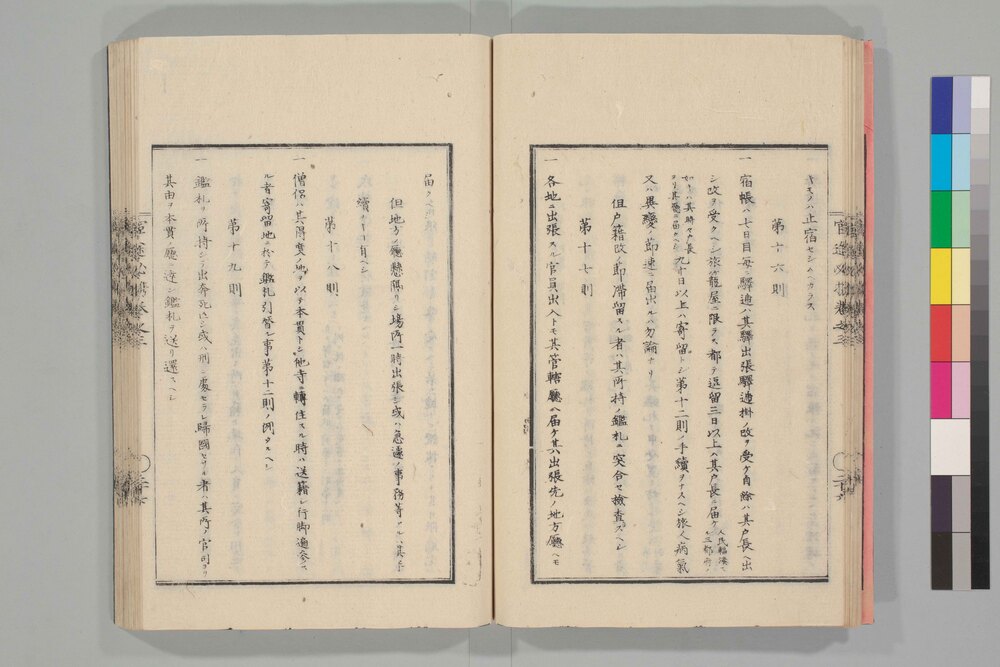 キモノハ止宿セシムヘカラス
第十六則
一 宿帳ハ七日目毎ニ驛逓ハ其驛出張驛逓掛ノ改ヲ受ケ自餘ハ其戸長ヘ出
シ改ヲ受クヘシ旅籠屋ニ限ラス都テ逗留三日以上ハ其戸長ニ届ケ
人民輻湊
ル三都府ノ
如キハ其時々戸長
ヨリ其廳ニ届クヘシ
九十日以上ハ寄留トシ第十二則ノ手續ヲナスヘシ旅人病氣
又ハ異變ノ節速ニ届出ルハ勿論ナリ
但戸籍改ノ節滞留スル者ハ其所持ノ鑑札ニ突合セ檢査スヘシ
第十七則
一 各地ニ出張スル官員出入トモ其管轄廳ヘ届ケ其出張先ノ地方廳ヘモ
届クヘシ
但地方ノ廳懸隔リシ場所ヘ一時出張シ或ハ急遽ノ事務等アルハ其手
續ヲ
第十八則
一 僧侶ハ其得度ノ地ヲ以テ本貫トシ他寺ニ轉住スル時ハ送籍シ行脚遍參ス
ル者寄留地ニ於テ鑑札引替ル事第十二則ノ例タルヘシ
第十九則
一 鑑札ヲ所持シテ出奔死亡シ或ハ刑ニ處セラレ歸國セサル者ハ其所ノ官司ヨリ
其由ヲ本貫ノ廳ニ達シ鑑札ヲ送リ還スヘシ